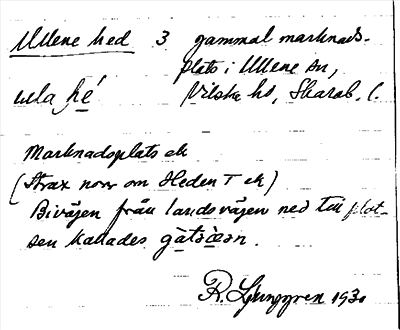 Ullene hed 3 gammal marknads-
plats i Ullene sn,
ulla hé Vilske hd, Skarab. l.
Marknadsplats ek
(Strax norr om Heden T ek)
Bivägen från landsvägen ned till plat-
sen kallades
R. Ljunggren 1930